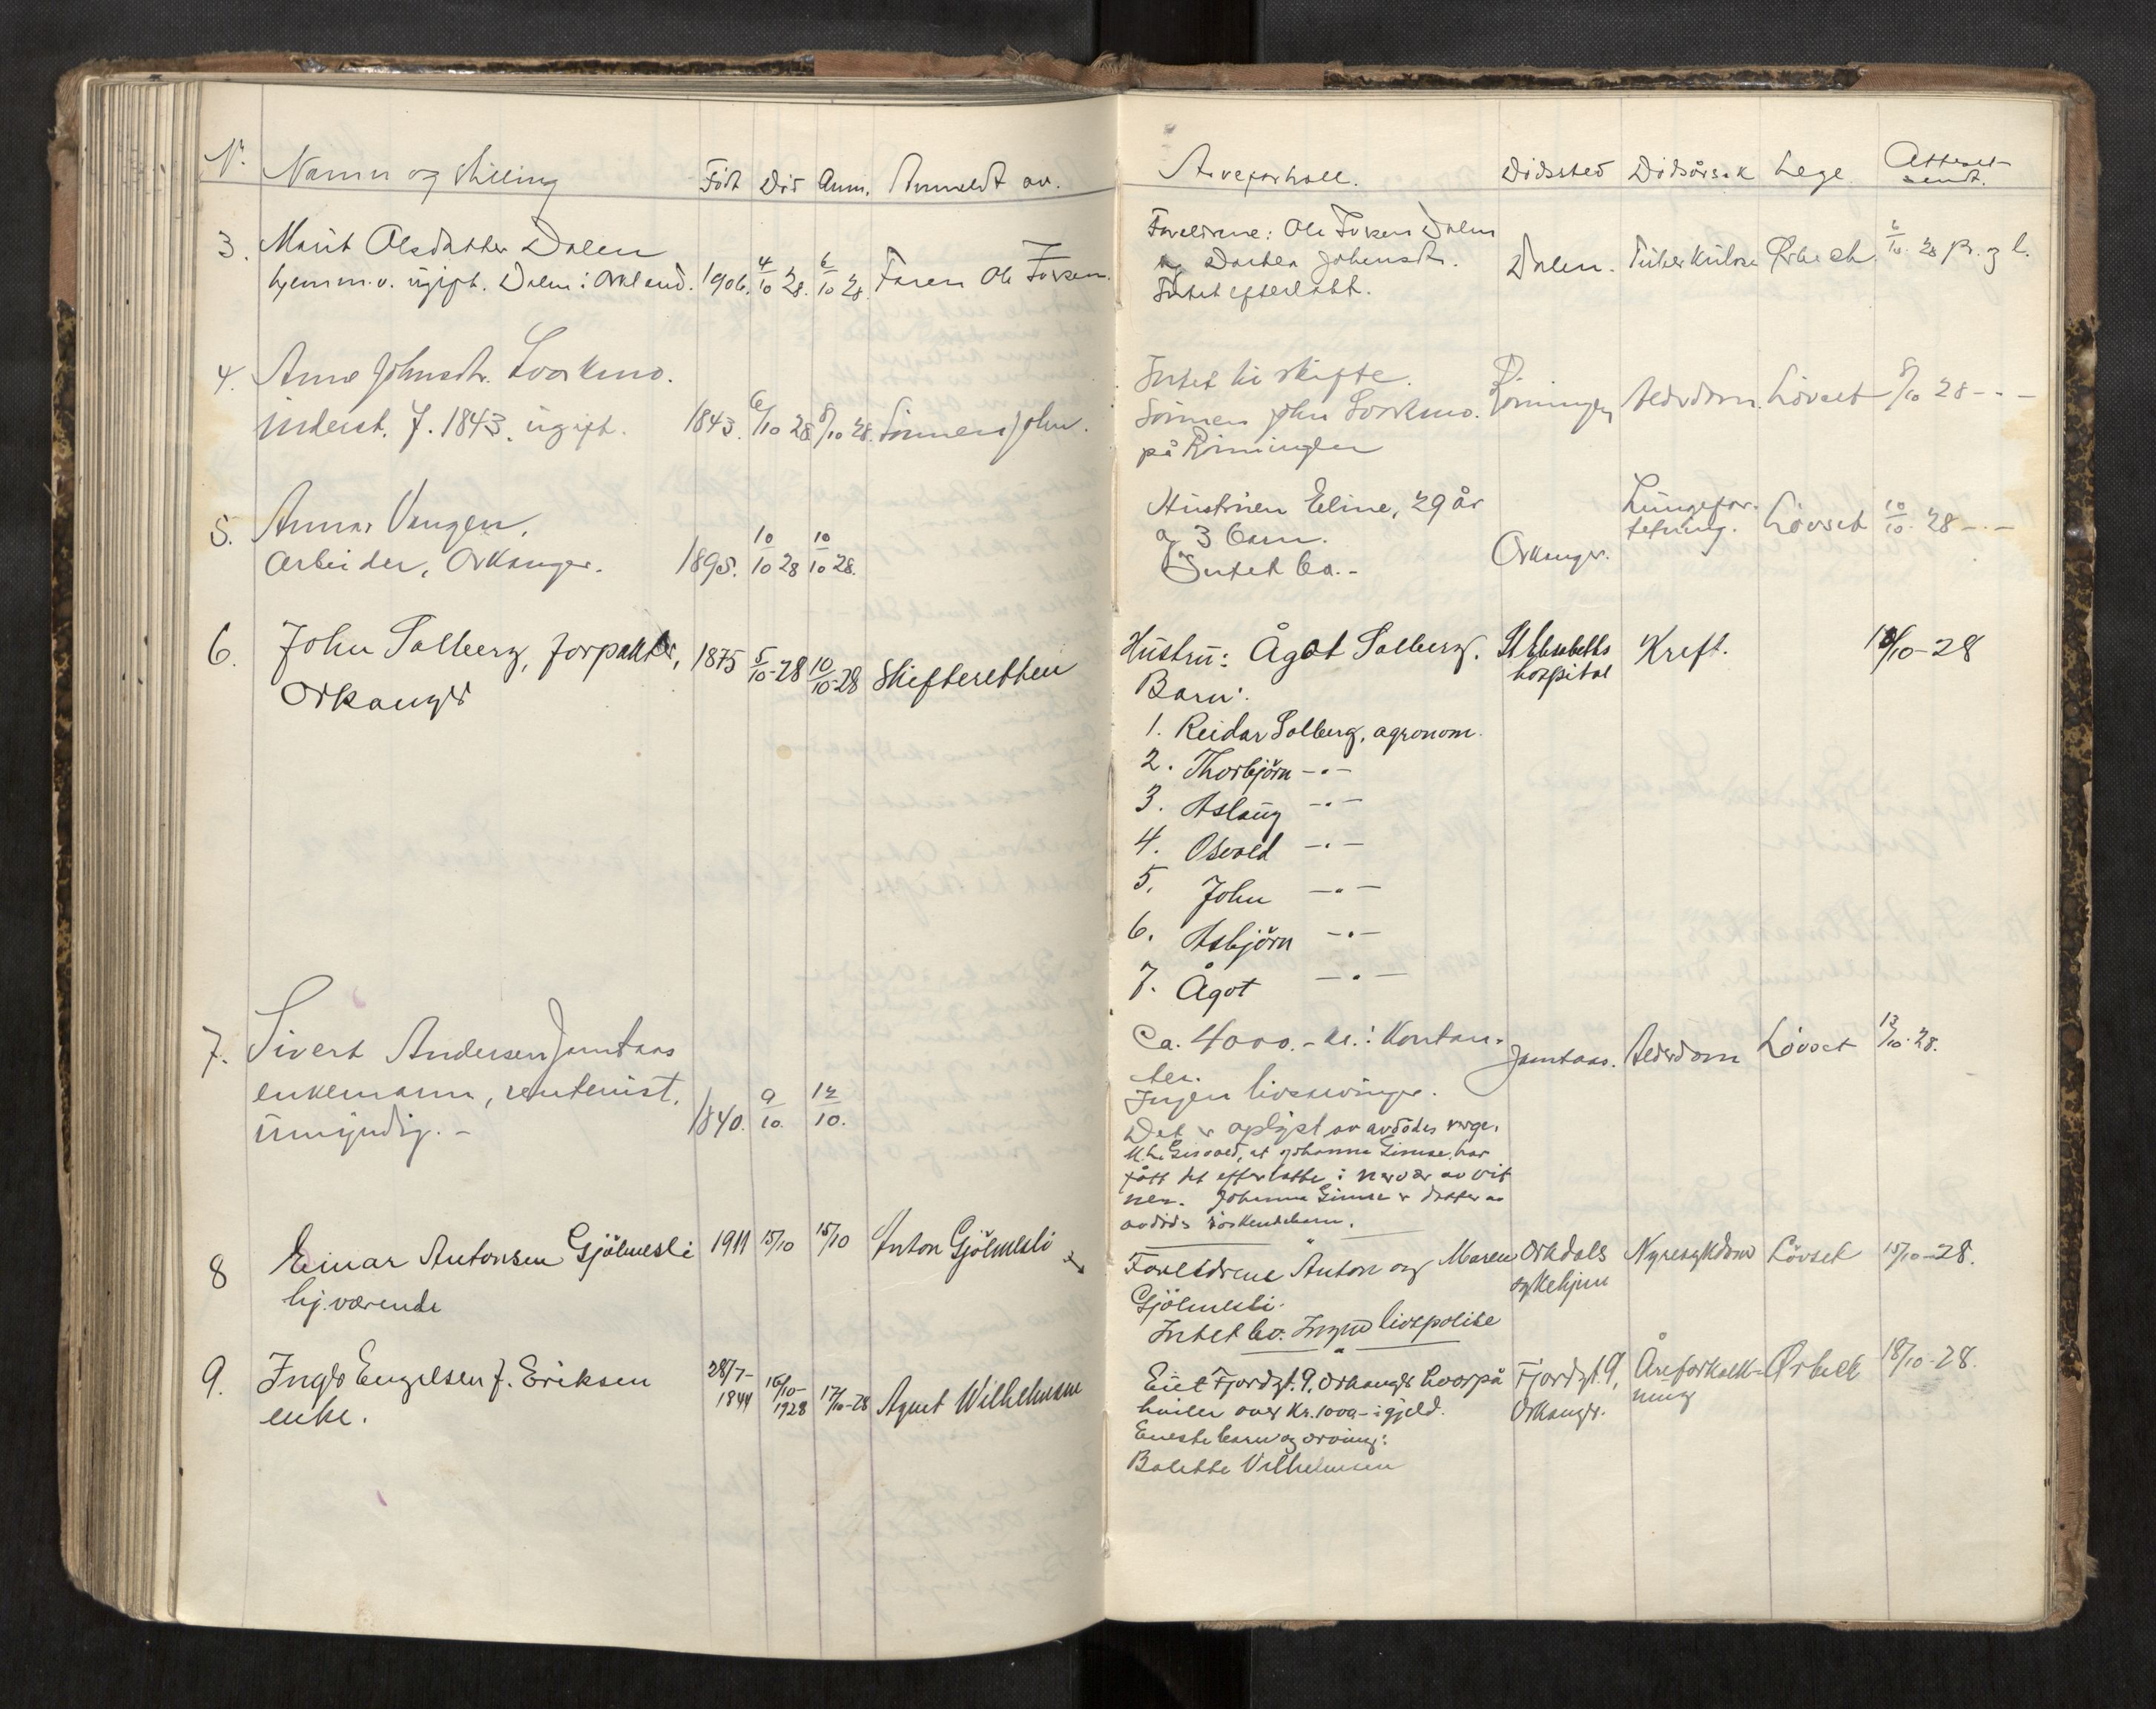 Nr. Namn og stilling Födt Död Anm. Anmeldt av. Arveforhold. Dödssted Dödsårsak Lege Attest sendt.
3. Marit Olsdatter Dalen
hjemm.v. ugift. Dalen i Orkland. 1906. 4/10 28. 6/10 28. Faren Ole
Foreldrene: Ole Dalen
og Dortea Johnsdtr.
Intet efterlatt.
Dalen. Tuberkulose Ørbech 6/10 28
4. Anne Johnsdtr.
inderst. f. 1843. ugift. 1843. 6/10 28 8/10 28. Sönnen John.
Intet til skifte.
Sönnen John
på Römningen
Römningen Alderdom. Lövset 8/10 28 - " -
5. Vangen.
Arbeider, Orkanger. 1895. 10/10 28 10/10 28.
Hustruen Eline, 29 år
og 3 barn.
Intet bo. -
Orkanger. Lungebe-
tennelse. Lövset 10/10 28 - " -
6. John Solberg, forpakter, 1875 5/10-28 10/10-28 Skifteretten
Orkanger
Hustru: Ågot Solberg. St. Elisabeths
hospital Kreft. 10/10-28
Barn:
1. Reidar Solberg, agronom.
2. Thorbjörn - " -
3. Aslaug - " -
4. Osvald - " -
5. John - " -
6. Asbjörn - " -
7. Ågot - " -
7. Sivert Andersen Jamtaas
enkemann, rentenist.
umyndig. - 1840. 9/10. 12/10.
Ca. 4000.- kr. i kontan-
ter.
Ingen livsarvinger.
Det er oplyst av avdödes verge,
at Johanna Gimse har
fått det efterlatte i nærvær av vit
ner. Johanna Gimse er datter av
avdödes söskendebarn.
Jamtaas. Alderdom Lövset 12/10-28.
8 Einar Antonsen Gjölmesli 1911 15/10 15/10 Anton Gjölmesli
hj.værende
Foreldrene Anton og Maren
Gjölmesli.
Intet bo. Ingen livspolise
Orkdals
sykehjem Nyresykdom Lövset 15/10-28.
9. Engelsen f. Eriksen 28/7-
1844 16/10-
1928 17/10-28 Agnet Wilhelmsen
enke.
Eiet Fjordgt. 9, Orkanger hvorpå
hviler over kr. 1000.- i gjeld.
Eneste barn og arving:
Bolette Vilhelmsen
Fjordgt. 9,
Orkanger. Åreforkalk-
ning Ørbeck 18/10-28.